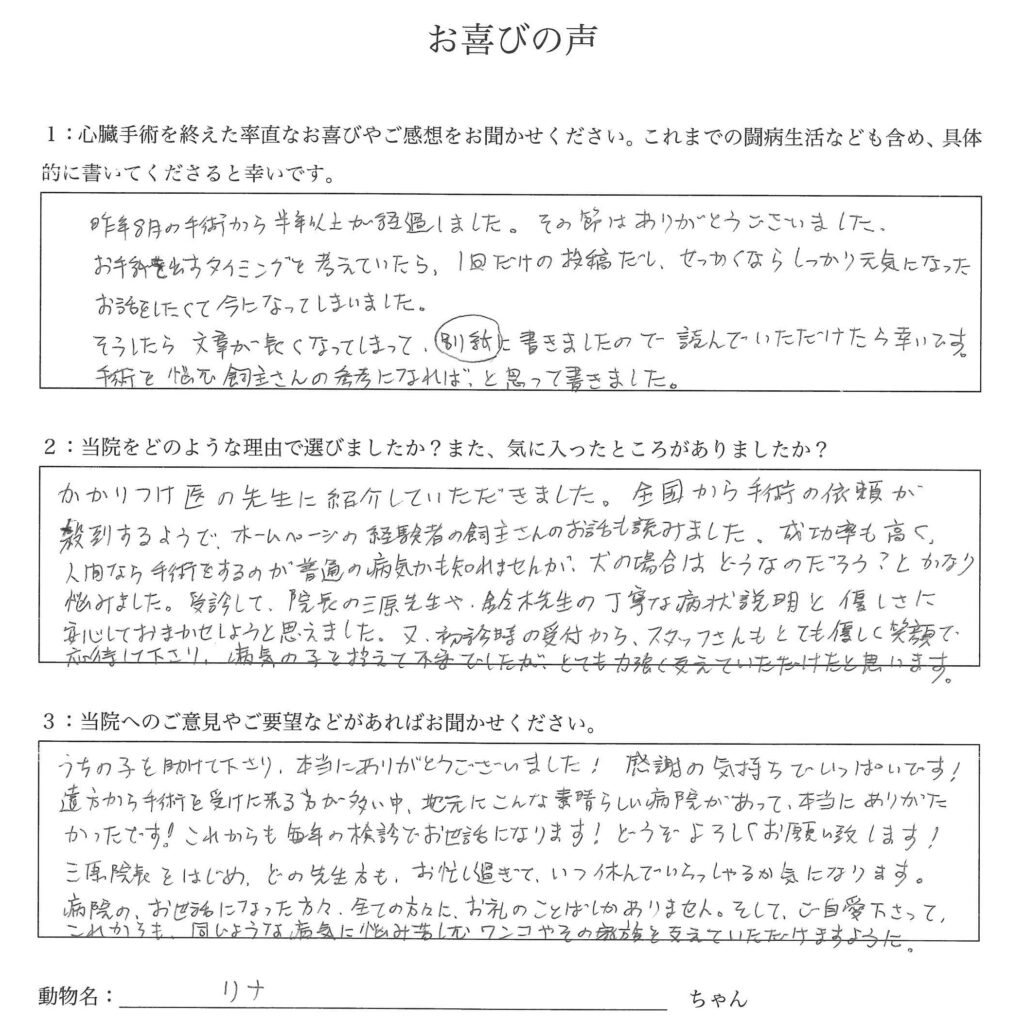 お喜びの声
1：心臓手術を終えた率直なお喜びやご感想をお聞かせください。これまでの闘病生活なども含め、具体
的に書いてくださると幸いです。
昨年8月の手術から半年以上が経過しました。その節はありがとうございました。
お手紙を出すタイミングを考えていたら、1回だけの投稿だし、せっかくならしっかり元気になった
お話をしたくて今になってしまいました。
そうしたら文章が長くなってしまって、別紙に書きましたので読んでいただけたら幸いです。
手術を悩む飼主さんの参考になれば、と思って書きました。
2：当院をどのような理由で選びましたか？また、気に入ったところがありましたか？
かかりつけ医の先生に紹介していただきました。全国から手術の依頼が
殺到するようで、ホームページの経験者の飼主さんのお話も読みました。成功率も高く、
人間なら手術をするのが普通の病気かも知れませんが、犬の場合はどうなのだろう？とかなり
悩みました。受診して、院長の三原先生や、鈴木先生の丁寧な病状説明と優しさに
安心しておまかせしようと思えました。又、初診時の受付から、スタッフさんもとても優しく笑顔で
応待して下さり、病気の子を抱えて不安でしたが、とても力強く支えていただけたと思います。
3：当院へのご意見やご要望などがあればお聞かせください。
うちの子を助けて下さり、本当にありがとうございました！感謝の気持ちでいっぱいです！
遠方から手術を受けに来る方が多い中、地元にこんな素晴らしい病院があって、本当にありがた
かったです！これからも毎年の検診でお世話になります！どうぞよろしくお願い致します！
三原院長をはじめ、どの先生方も、お忙し過ぎて、いつ休んでいらっしゃるか気になります。
病院の、お世話になった方々、全ての方々に、お礼のことばしかありません。そして、ご自愛下さって、
これからも、同じような病気に悩み苦しむワンコやその家族を支えていただけますように。
動物名：リナ ちゃん